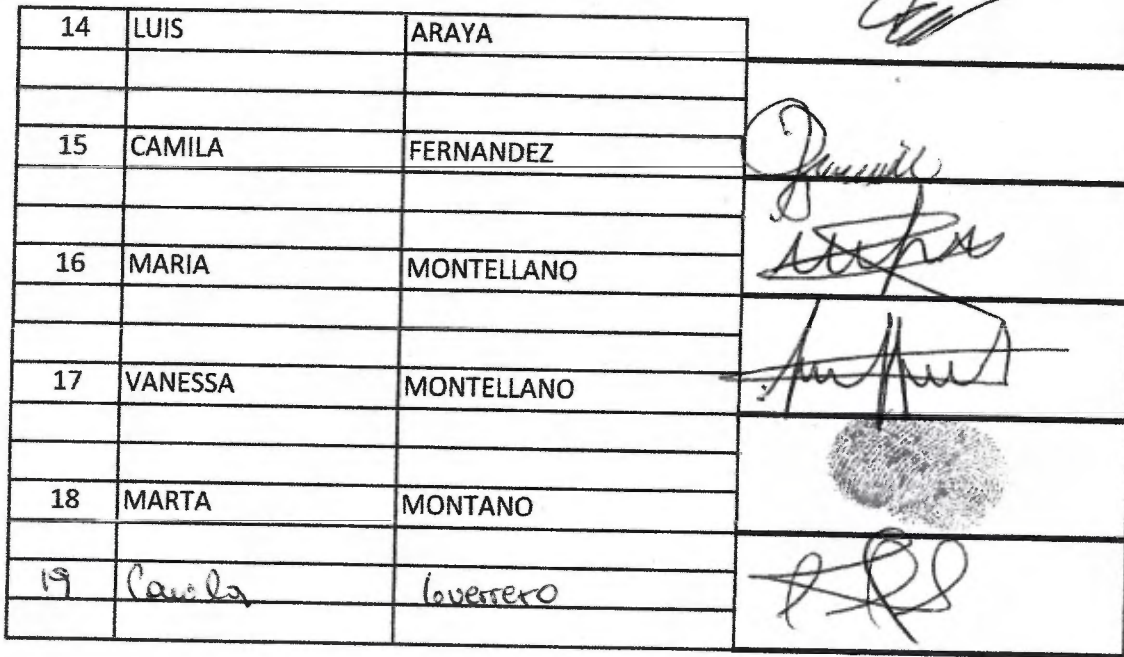 14 LUIS ARAYA
15 CAMILA FERNANDEZ
16 MARIA MONTELLANO
17 VANESSA MONTELLANO
18 MARTA MONTANO
19 Camila Guerrero